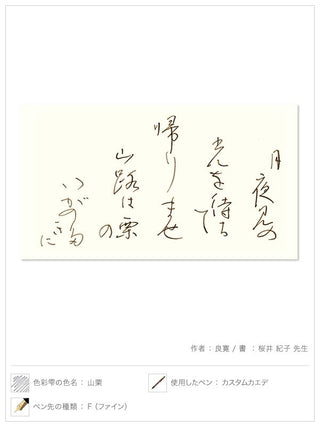 月夜見の
光を待ちて
帰りませ
山路は栗の
いがの多きに
作者：良寛 / 書 ：桜井 紀子 先生
色彩雫の色名： 山栗
使用したペン： カスタムカエデ
ペン先の種類： F（ファイン）